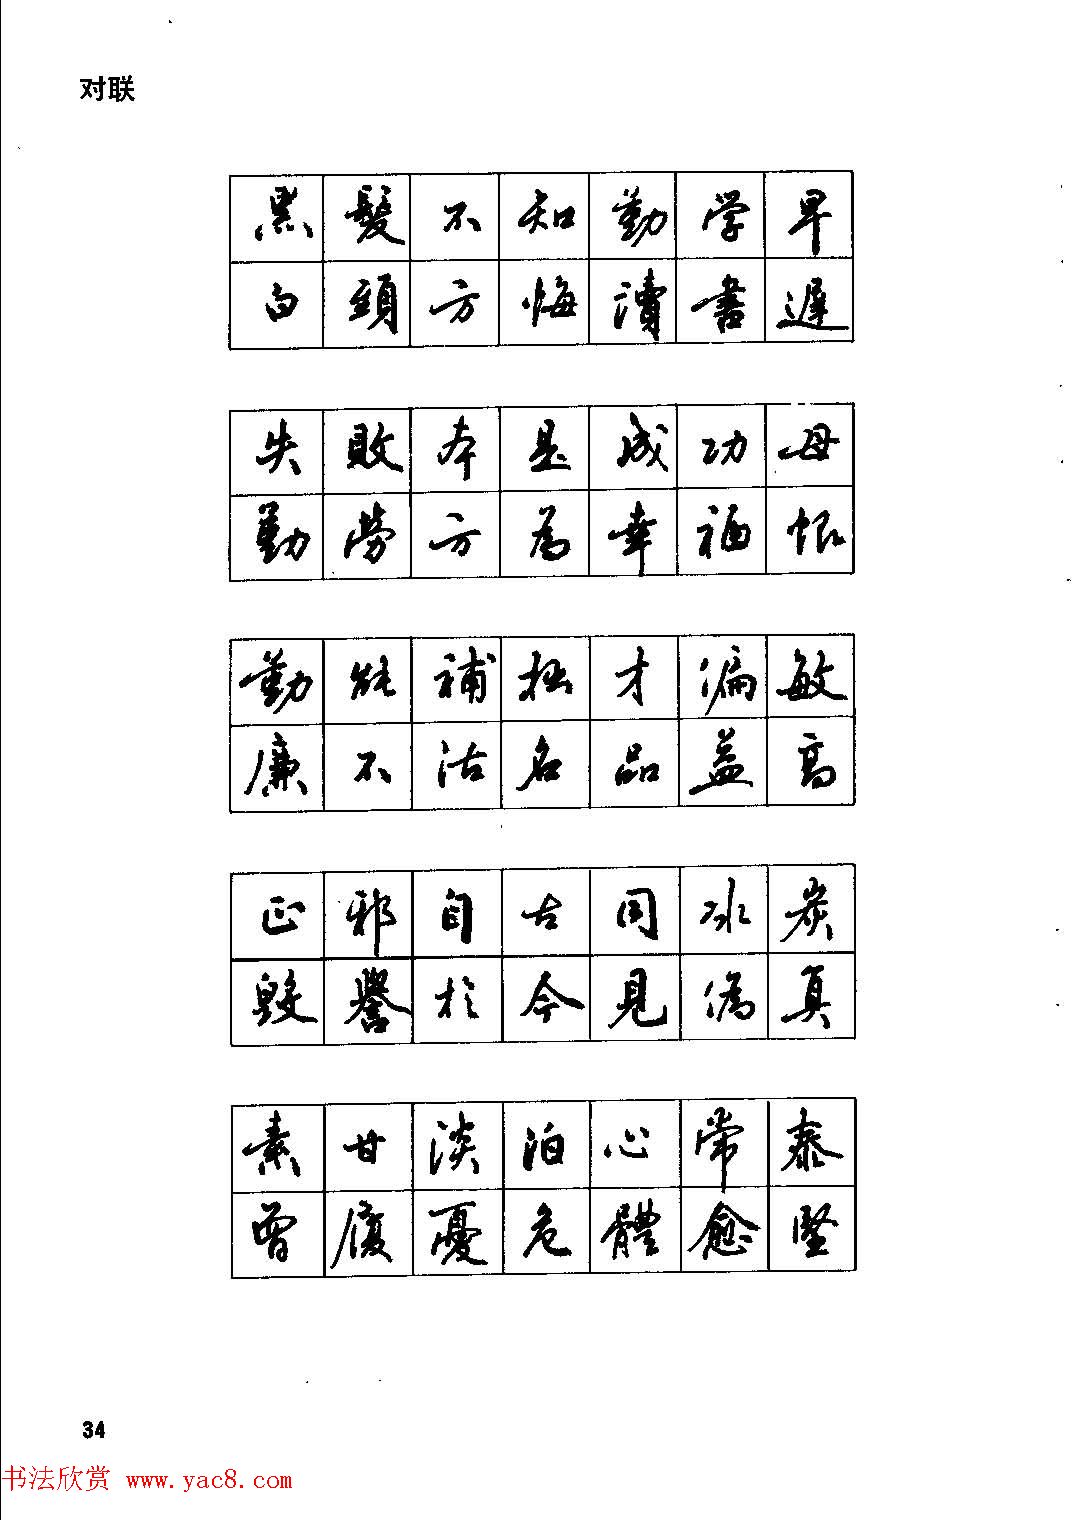 对联
黑髮不知勤学早
白頭方悔讀書遲
失敗本是成功母
勤劳方為幸福根
勤能補拙才偏敏
廉不沽名品益高
正邪自古同冰炭
毀譽於今見偽真
素甘淡泊心常泰
曾履憂危體愈堅
34
书法欣赏 www.yac8.com